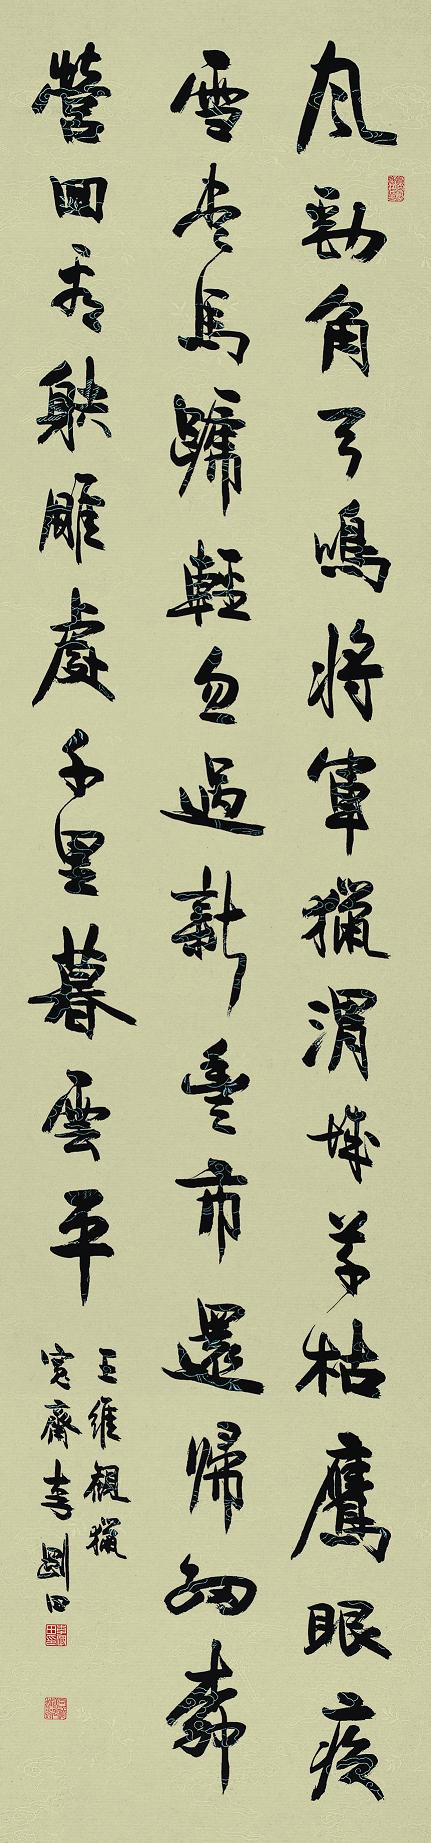 風勁角弓鳴将軍獵渭城草枯鷹眼疾
雪尽馬蹄輕忽過新豐市還歸細柳
營回看射雕處千里暮雲平
王維觀獵
寬齋李剛田